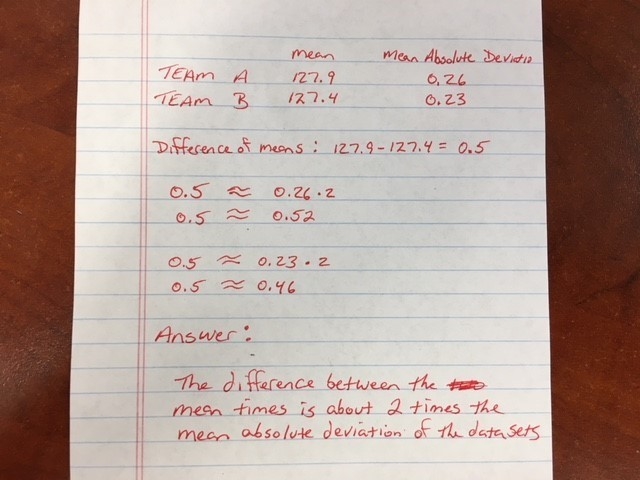 mean Mean Absolute Deviatio
TEAM A 127.9 0.26
TEAM B 127.4 0.23
Difference of means : 127.9-127.4 = 0.5
0.5 ≈ 0.26 · 2
0.5 ≈ 0.52
0.5 ≈ 0.23 · 2
0.5 ≈ 0.46
Answer:
The difference between the
mean times is about 2 times the
mean absolute deviation of the data sets